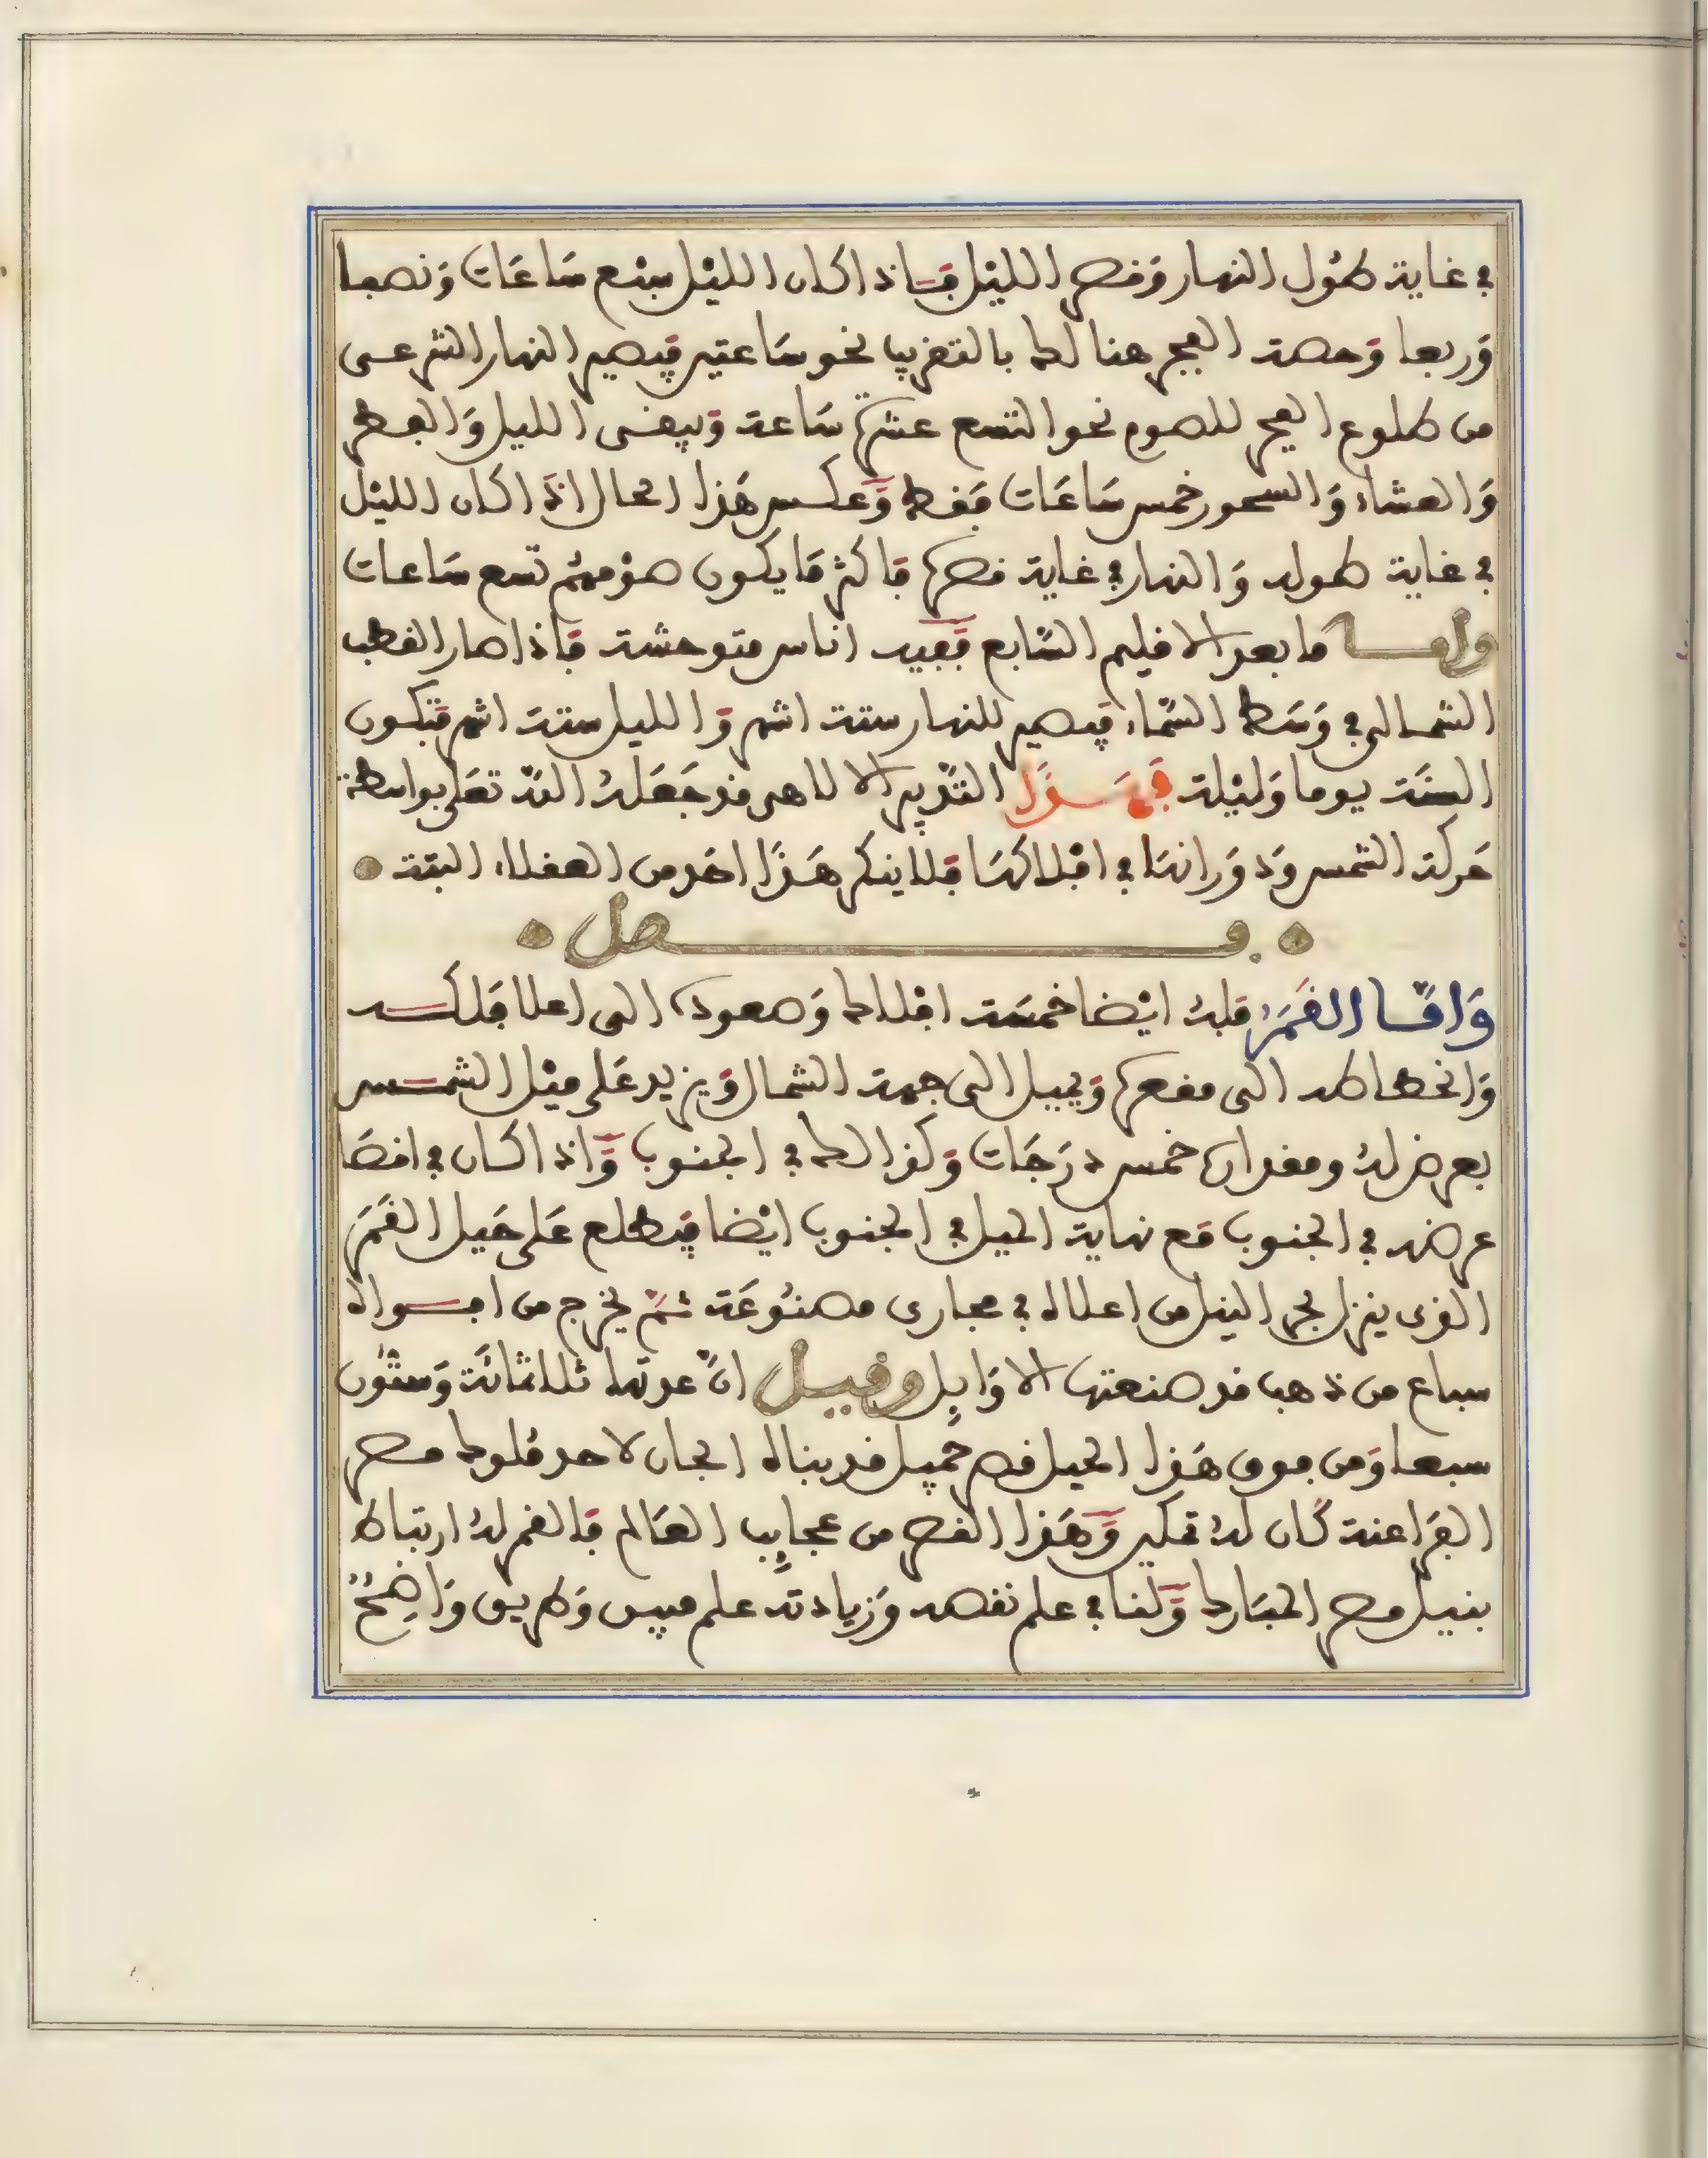 في غاية طول النهار وقصر الليل فاذا كان الليل سبع ساعات ونصفا
وربعا وحصة الفجر هنالك بالتقريب نحو ساعتين فيصير النهار الشرعى
من طلوع الفجر للصوم نحو التسع عشرة ساعة ويبقى الليل والفطر
والعشاء والسحور خمس ساعات فقط وعكس هذا الحال اذا كان الليل
في غاية طوله والنهار في غاية قصره فاكثر ما يكون صومهم تسع ساعات
واما ما بعد الاقليم السابع ففيه اناس متوحشة فاذا صار القطب
الشمالى في وسط السماء فيصير للنهار ستة اشهر والليل ستة اشهر فتكون
السنة يوما وليلة فهذا التدبير الالاهى قد جعله الله تعلى بواسطة
حركة الشمس ودورانها في افلاكها فلا ينكر هذا احد من العقلاء البتة
فصل
واما القمر فله ايضا خمسة افلاك وصعوده الى اعلا فلكه
وانحطاطه الى مقعره ويميل الى جهة الشمال ويزيد على ميل الشمس
بعرض له ومقداره خمس درجات وكذالك في الجنوب واذا كان في اقصا
عرضه في الجنوب مع نهاية الميل في الجنوب ايضا فيطلع على جبل القمر
الذى ينزل بحر النيل من اعلاه في مجارى مصنوعة ثم يخرج من افواه
سباع من ذهب قد صنعتها الاوايل وقيل ان عدتها ثلاثمائة وستون
سبعا ومن فوق هذا الجبل قصر جميل قد بناه الجان لاحد ملوك مصر
الفراعنة كان له تمكين وهذا القصر من عجايب العالم فالقمر له ارتباط
بنيل مصر المبارك ولنا في علم نقصه وزيادته علم مبين وطريق واضح